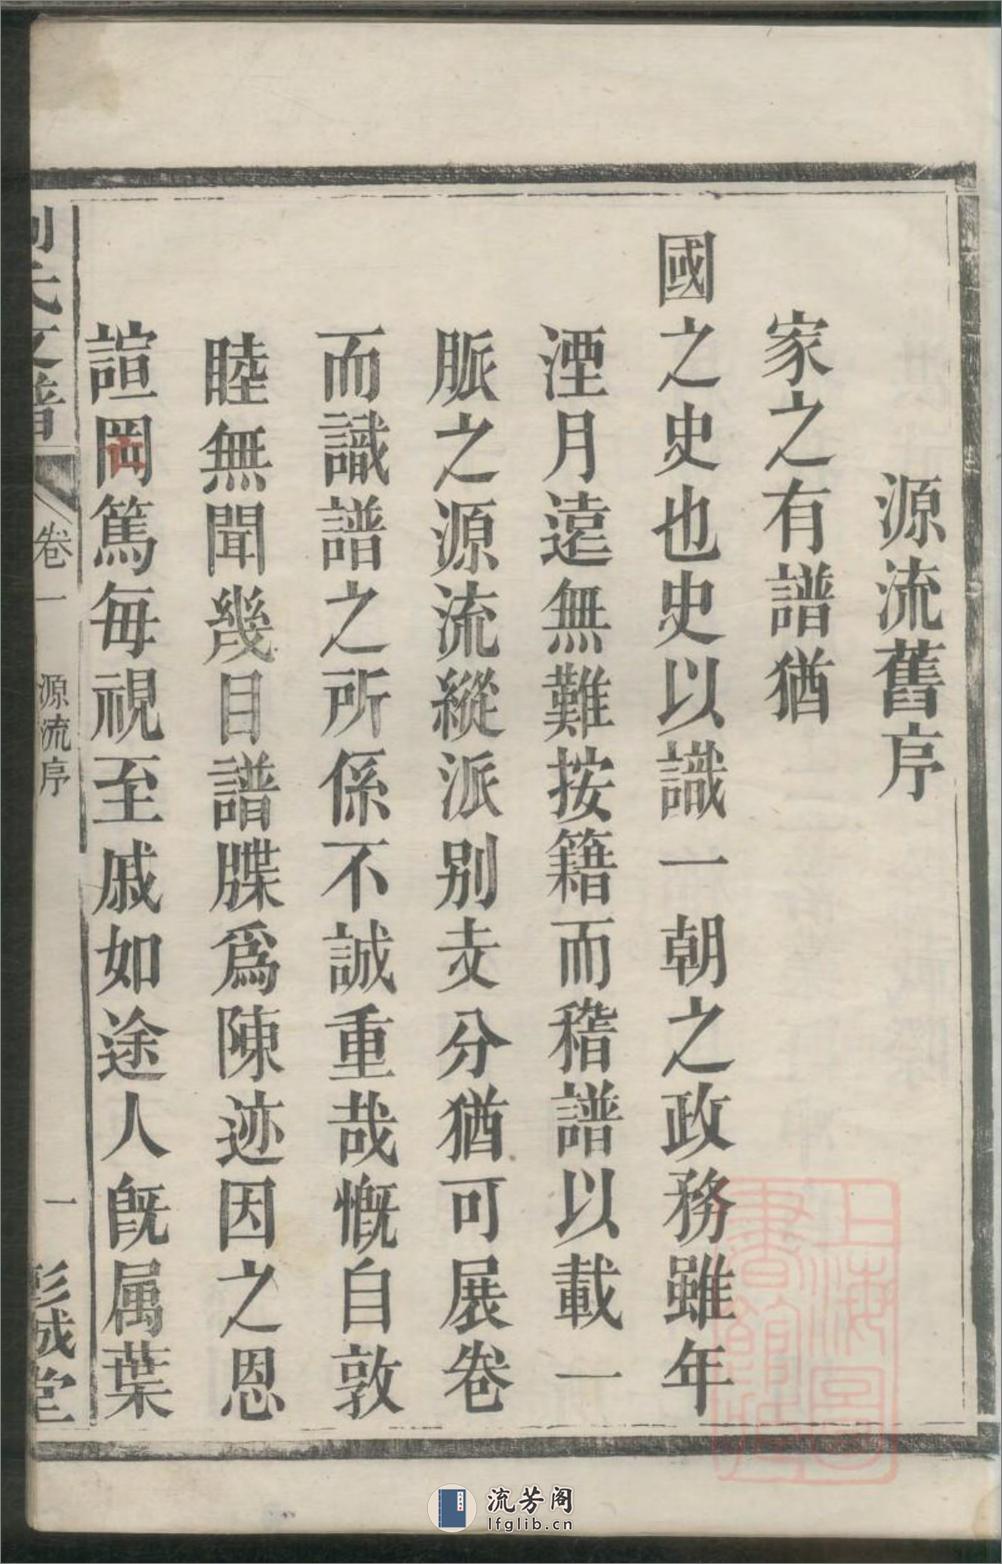 源流舊序
家之有譜猶
國之史也史以識一朝之政務雖年
湮月遠無難按籍而稽譜以載一
脈之源流縱派别支分猶可展卷
而識譜之所係不誠重哉慨自敦
睦無聞幾目譜牒為陳迹因之恩
誼罔篤每視至戚如途人旣属葉
劉氏支譜
卷一
源流序
一
彭城堂
上海圖書館藏
流芳阁
lfglib.cn